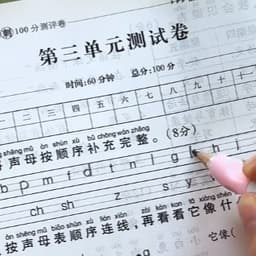 100分测评卷
第三单元测试卷
时间:60分钟 总分:100分
二 四 五 六 七 八 九 十
shēng mǔ àn shùn xù bǔ chōng wán zhěng
声母按顺序补充完整。(8分)
b p m f d t n l g k h j
ch sh z s y
àn shēng mǔ biǎo shùn xù lián xiàn zài kàn kan tā xiàng shén
按声母表顺序连线,再看看它像什
它像(